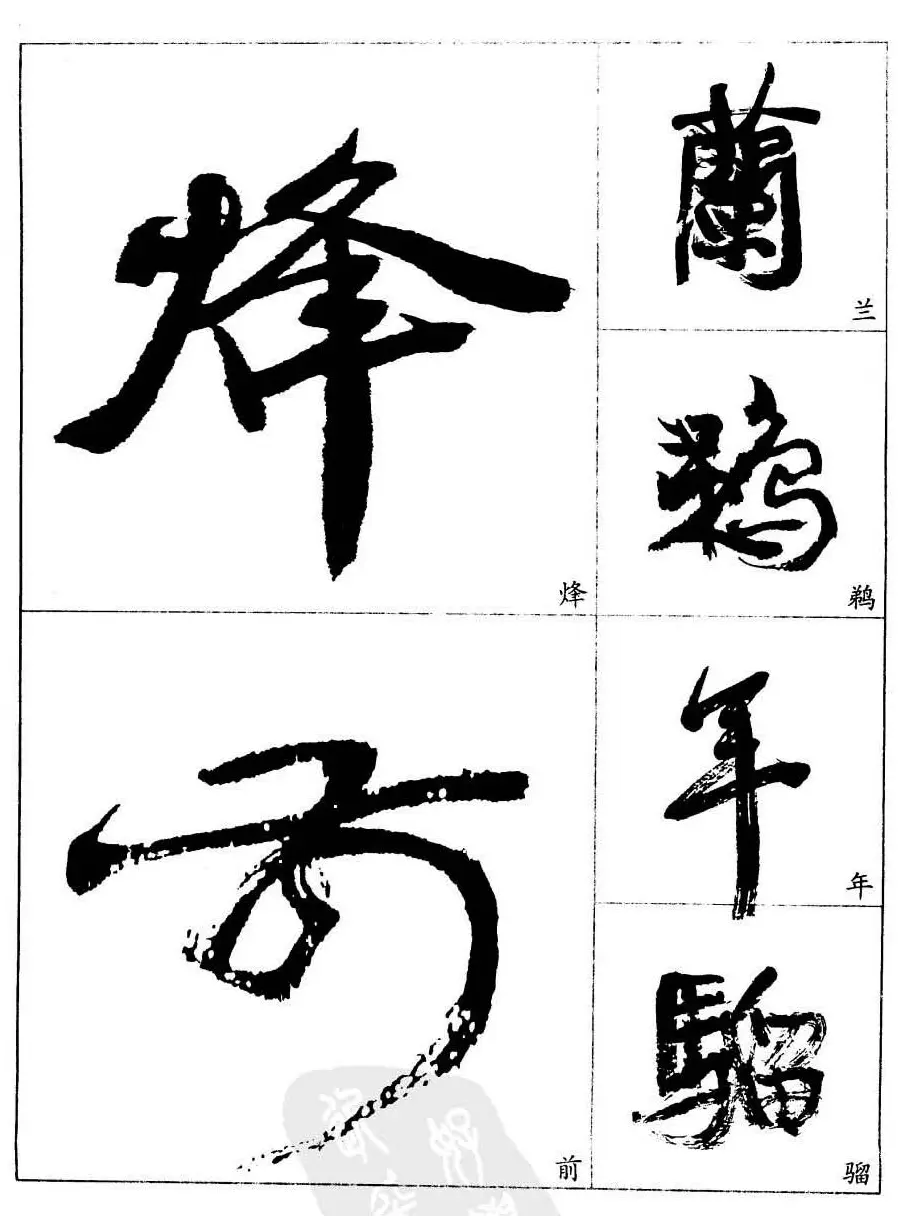 烽
烽
前
前
蘭
兰
鹈
鵜
年
年
騮
骝